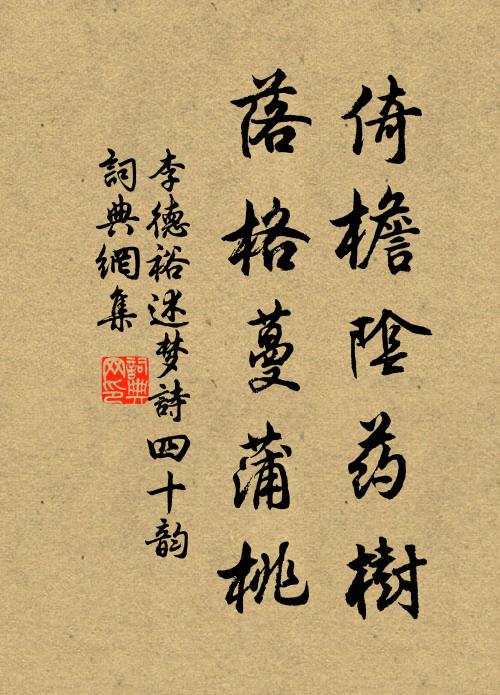 倚檐陰药樹
落格蔓蒲桃
李德裕述梦詩四十韵
詞典網集
詞典網印